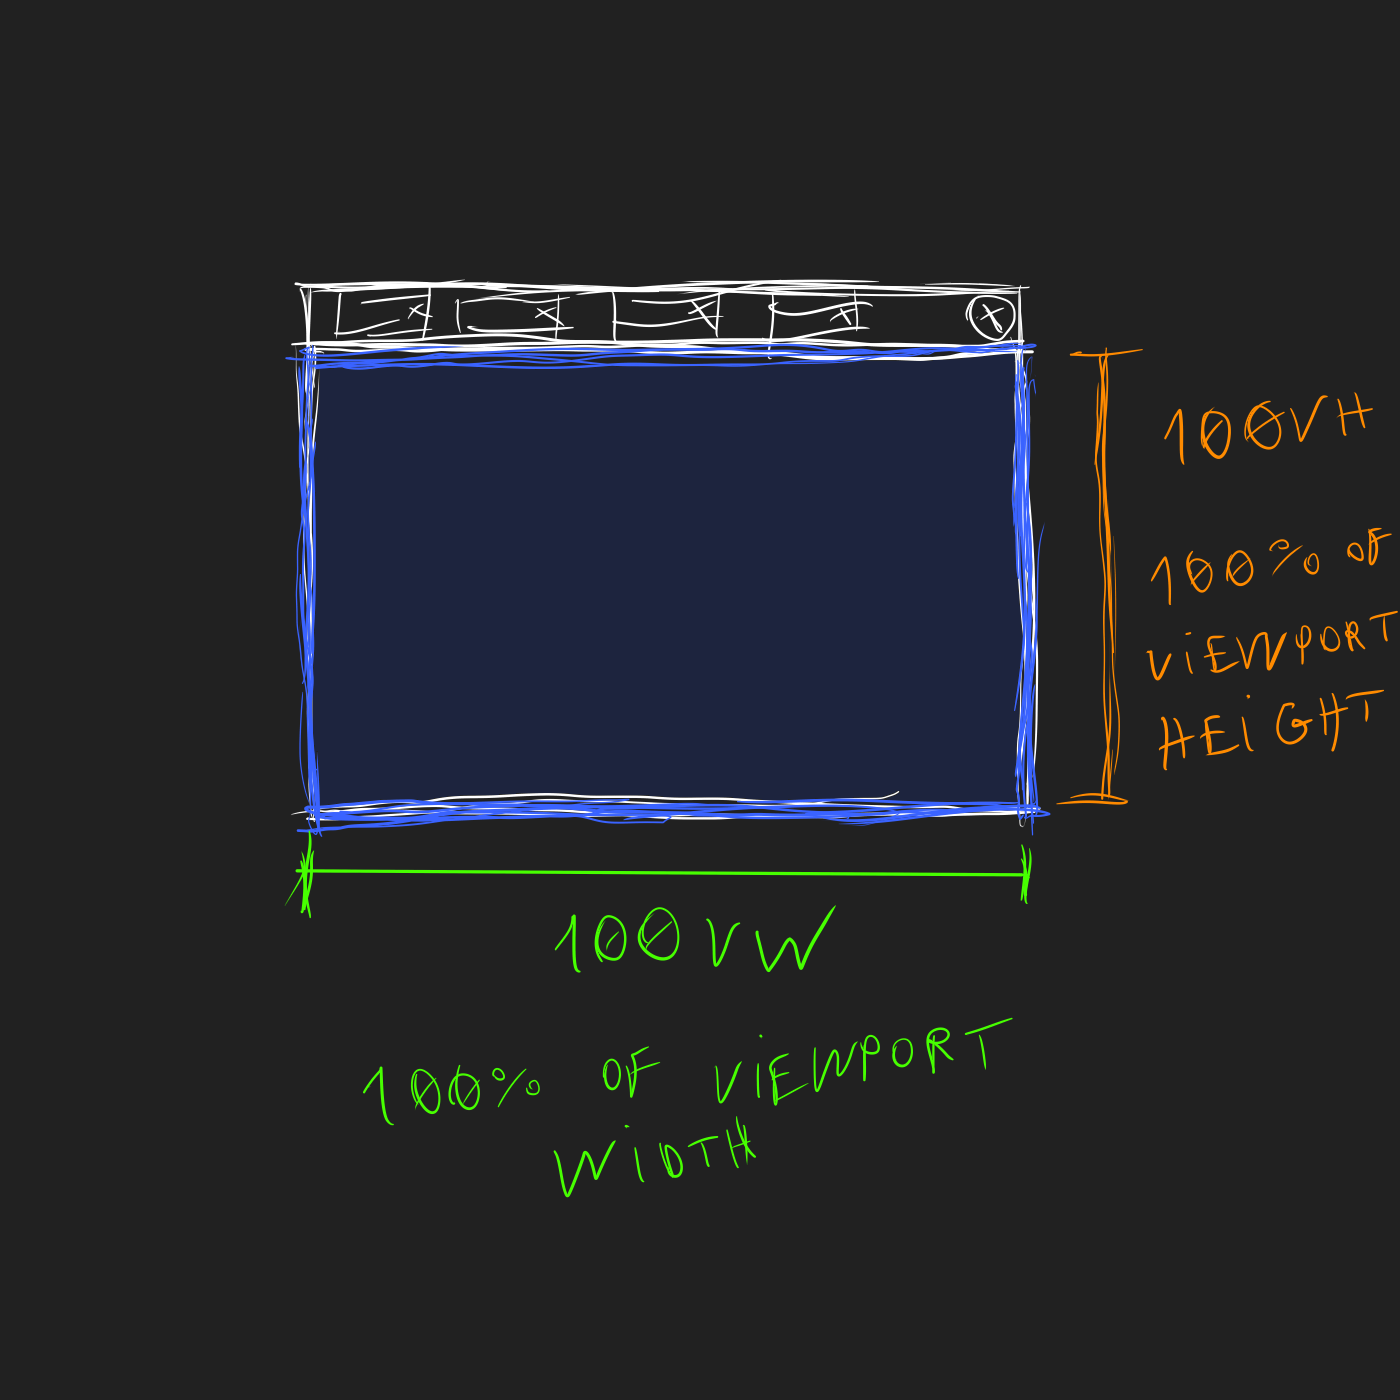 100VH
100% OF
ViEWPORT
HEiGHT
100VW
100% OF ViEWPORT
WiDTH